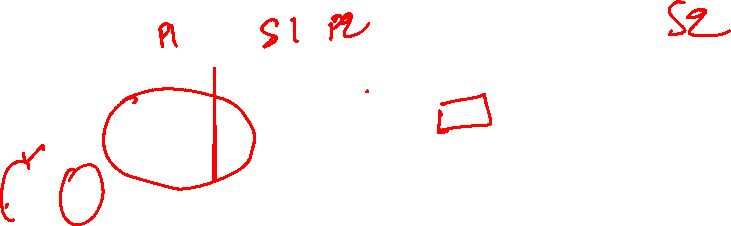 P1 S1 P2 S2